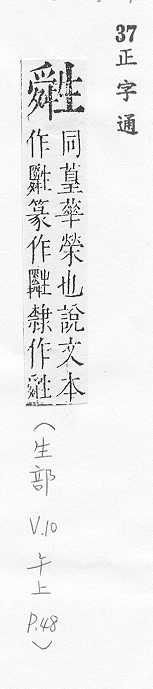 37
正字通
䑞
同葟華榮也說文本
作篆作隸作䑞
(生部 V.10 午上 P.48)